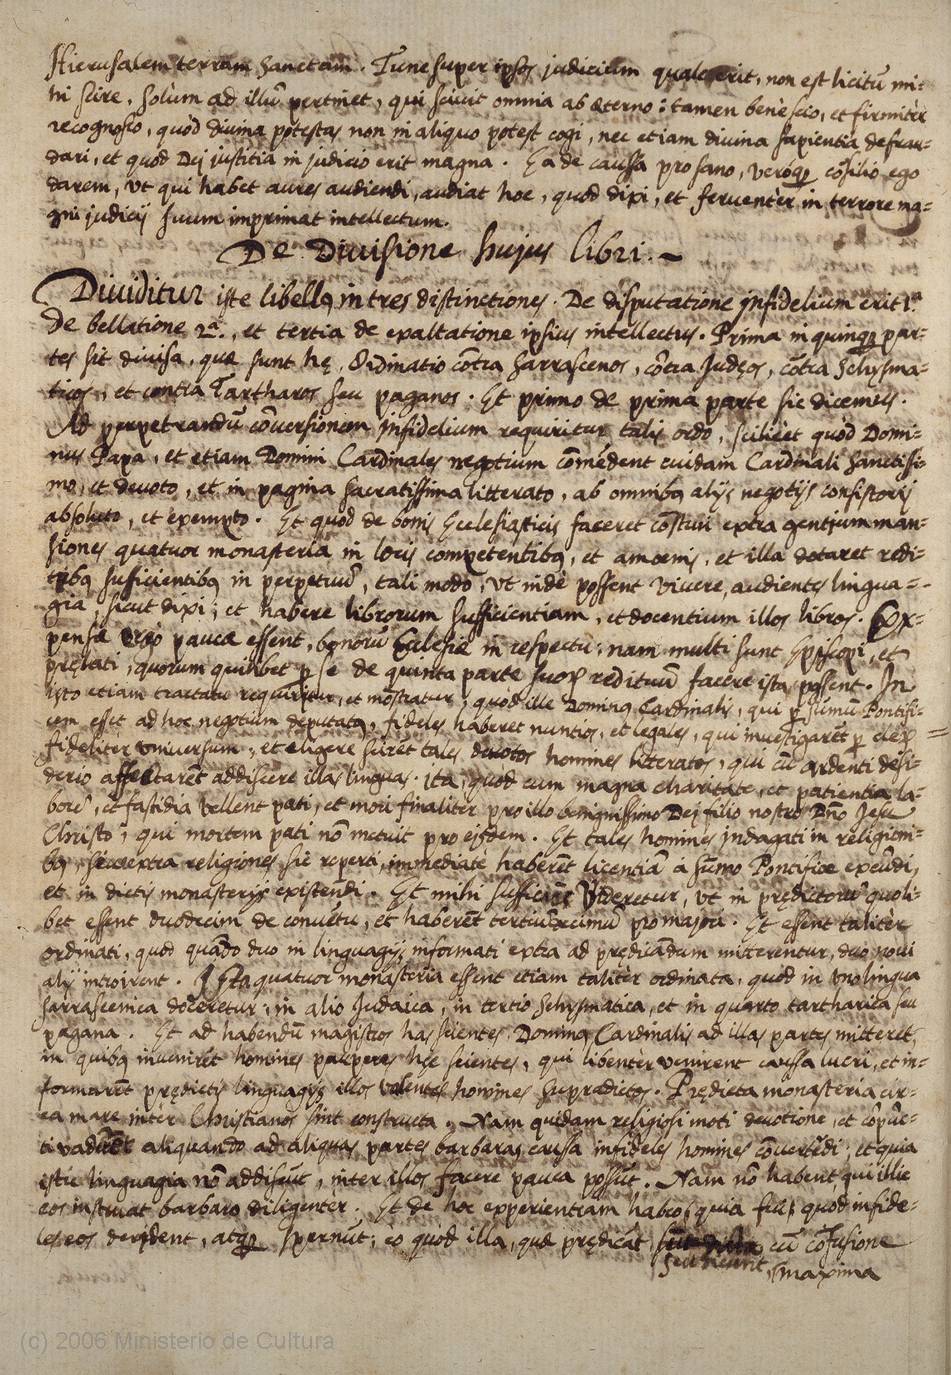 Hierusalem terram sanctam. Tunc super ipsos judicium quale erit, non est licitũ mi-
hi scire, solùm ad illũ pertinet, qui scivit omnia ab æterno: tamen benè scio, et firmitèr
recognosco, quòd divina potestas non in aliquo potest cogi, nec etiam divina sapientia defrau-
dari, et quod Dei justitia in judicio erit magna. Ea de caussa pro sano, veróq; cõsilio ego
darem, ut qui habet aures audiendi, audiat hoc, quod dixi, et ferventèr in terrore ma-
gni judicij suum imprimat intellectum.
De Divisione hujus libri.
Dividitur iste libellq in tres distinctiones. De disputatione infidelium erit 1.ª
de bellatione 2.ª, et tertia de exaltatione ipsius intellectus. Prima in quinq; par-
tes sit divisa, quæ sunt hę, Ordinatio cõtra Sarrascenos, cõtra Judęos, cõtra Schysma-
ticos, et contra Tartharos seu paganos. Et primo de prima parte sic dicemus.
Ad perpetrandũ cõversionem Infidelium requiritur talis ordo, scilicèt quòd Domi-
nus Papa, et etiam Domini Cardinales negotium cõmẽdent cuidam Cardinali sanctissi-
mo, et devoto, et in pagina sacratissima litterato, ab omnibq alijs negotijs consistorij
absoluto, et exempto. Et quod de bonis Ecclesiasticis faceret cõstrui extra gentium man-
siones quatuor monasteria in locis competentibq, et amoenis, et illa dotaret reddi-
tibq sufficientibq in perpetuũ, tali modo, ut inde possent vivere, audientes lingua-
gia, sicut dixi; et habere librorum sufficientiam, et docentium illos libros. Ex-
pensæ verò paucæ essent, bonorũ Ecclesiæ in respectu; nam multi sunt Episcopi, et
pręlati, quorum quilibet p se de quinta parte suoꝝ redituũ facere ista possent. In
isto etiam tractatu requiritur, et mõstratur, quòd ille Dominq Cardinalis, qui p summũ Pontifi-
cem esset ad hoc negotium deputatq, fideles haberet nuntios, et legales, qui investigarẽt p clerũ
fideliter universum, et eligere scirẽt tales devotos homines litteratos, qui cũ ardenti desi-
derio affectarẽt addiscere illas linguas. Ita, quòd cum magna charitate, et patientia la-
borẽ, et fastidia vellent pati, et mori finalitèr pro illo benignissimo Dei filio nostro Dño Jesu
Christo, qui mortem pati nõ metuit pro eisdem. Et tales homines indagati in religioni-
bq, sive extra religiones sic reperti, immediate haberẽt licentiã à sũmo Pontifice exeũdi,
et in dictis monasterijs existendi. Et mihi sufficiens videretur, ut in predictorũ quoli-
bet essent duodecim de convẽtu, et haberẽt tertiũdecimũ pro majori. Et essent talitèr
ordinati, quòd quãdo duo in linguagijs informati extra ad prędicãdum mitterentur, duo novi
alij introirent. Ista quatuor monasteria essent etiam talitèr ordinata, quòd in uno lingua
sarrascenica doceretur, in alio Judaica, in tertio schysmatica, et in quarto tartharica seu
pagana. Et ad habendũ magistros has scientes, Dominq Cardinalis ad illas partes mitteret,
in quibq invenirẽt homines pauperes hęc scientes, qui libentèr venirent caussa lucri, et in-
formarẽt prędictis linguagijs illos volentes homines supradictos. Prędicta monasteria cir-
ca mare intèr Christianos sint constructa. Nam quidam religiosi moti devotione, et cõpũc-
ti vadũt aliquando ad aliquas partes barbaras caussa infideles homines cõvertẽdi; et quia
istũ linguagia nõ addiscũt, inter illos facere pauca possũt. Nam nõ habent qui illic
eos instruat barbaro diligentèr. Et de hoc experientiam habeo, quia fui, quòd infide-
les eos derident, atq; spernũt; eo quòd illa, quæ prędicãt, cũ cõfusione
seu dicunt, maxima
(c) 2006 Ministerio de Cultura